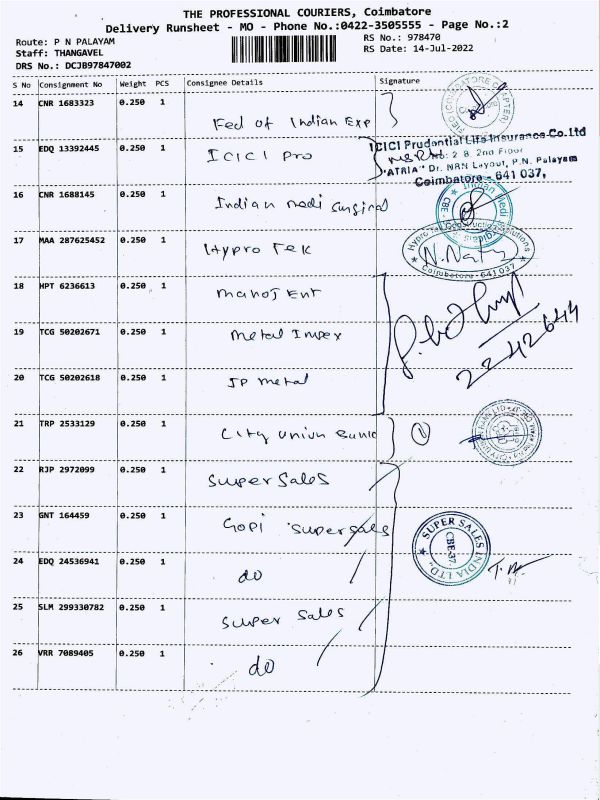 THE PROFESSIONAL COURIERS, Coimbatore
Delivery Runsheet - MO - Phone No.:0422-3505555 - Page No.:2
Route: P N PALAYAM
Staff: THANGAVEL
DRS No.: DCJB97847002
RS No.: 978470
RS Date: 14-Jul-2022
S No Consignment No Weight PCS Consignee Details Signature
14 CNR 1683323 0.250 1 Fed of Indian Exp
15 EDQ 13392445 0.250 1 ICICI Pro
ICICI Prudential Life Insurance Co.Ltd
No: 2 B, 2nd Floor
"ATRIA" Dr. NRN Layout, P.N. Palayam
Coimbatore - 641 037,
16 CNR 1688145 0.250 1 Indian medi surgical
17 MAA 287625452 0.250 1 Hypro Tek
Coimbatore - 641 037
18 HPT 6236613 0.250 1 manoj Ent
19 TCG 50202671 0.250 1 metal Impex
2242644
20 TCG 50202618 0.250 1 JP metal
21 TRP 2533129 0.250 1 City Union Bank 1
22 RJP 2972099 0.250 1 Super Sales
23 GNT 164459 0.250 1 Gopi super sales
SUPER SALES INDIA LTD.,
CBE-37.
24 EDQ 24536941 0.250 1 do
25 SLM 299330782 0.250 1 Super Sales
26 VRR 7089405 0.250 1 do